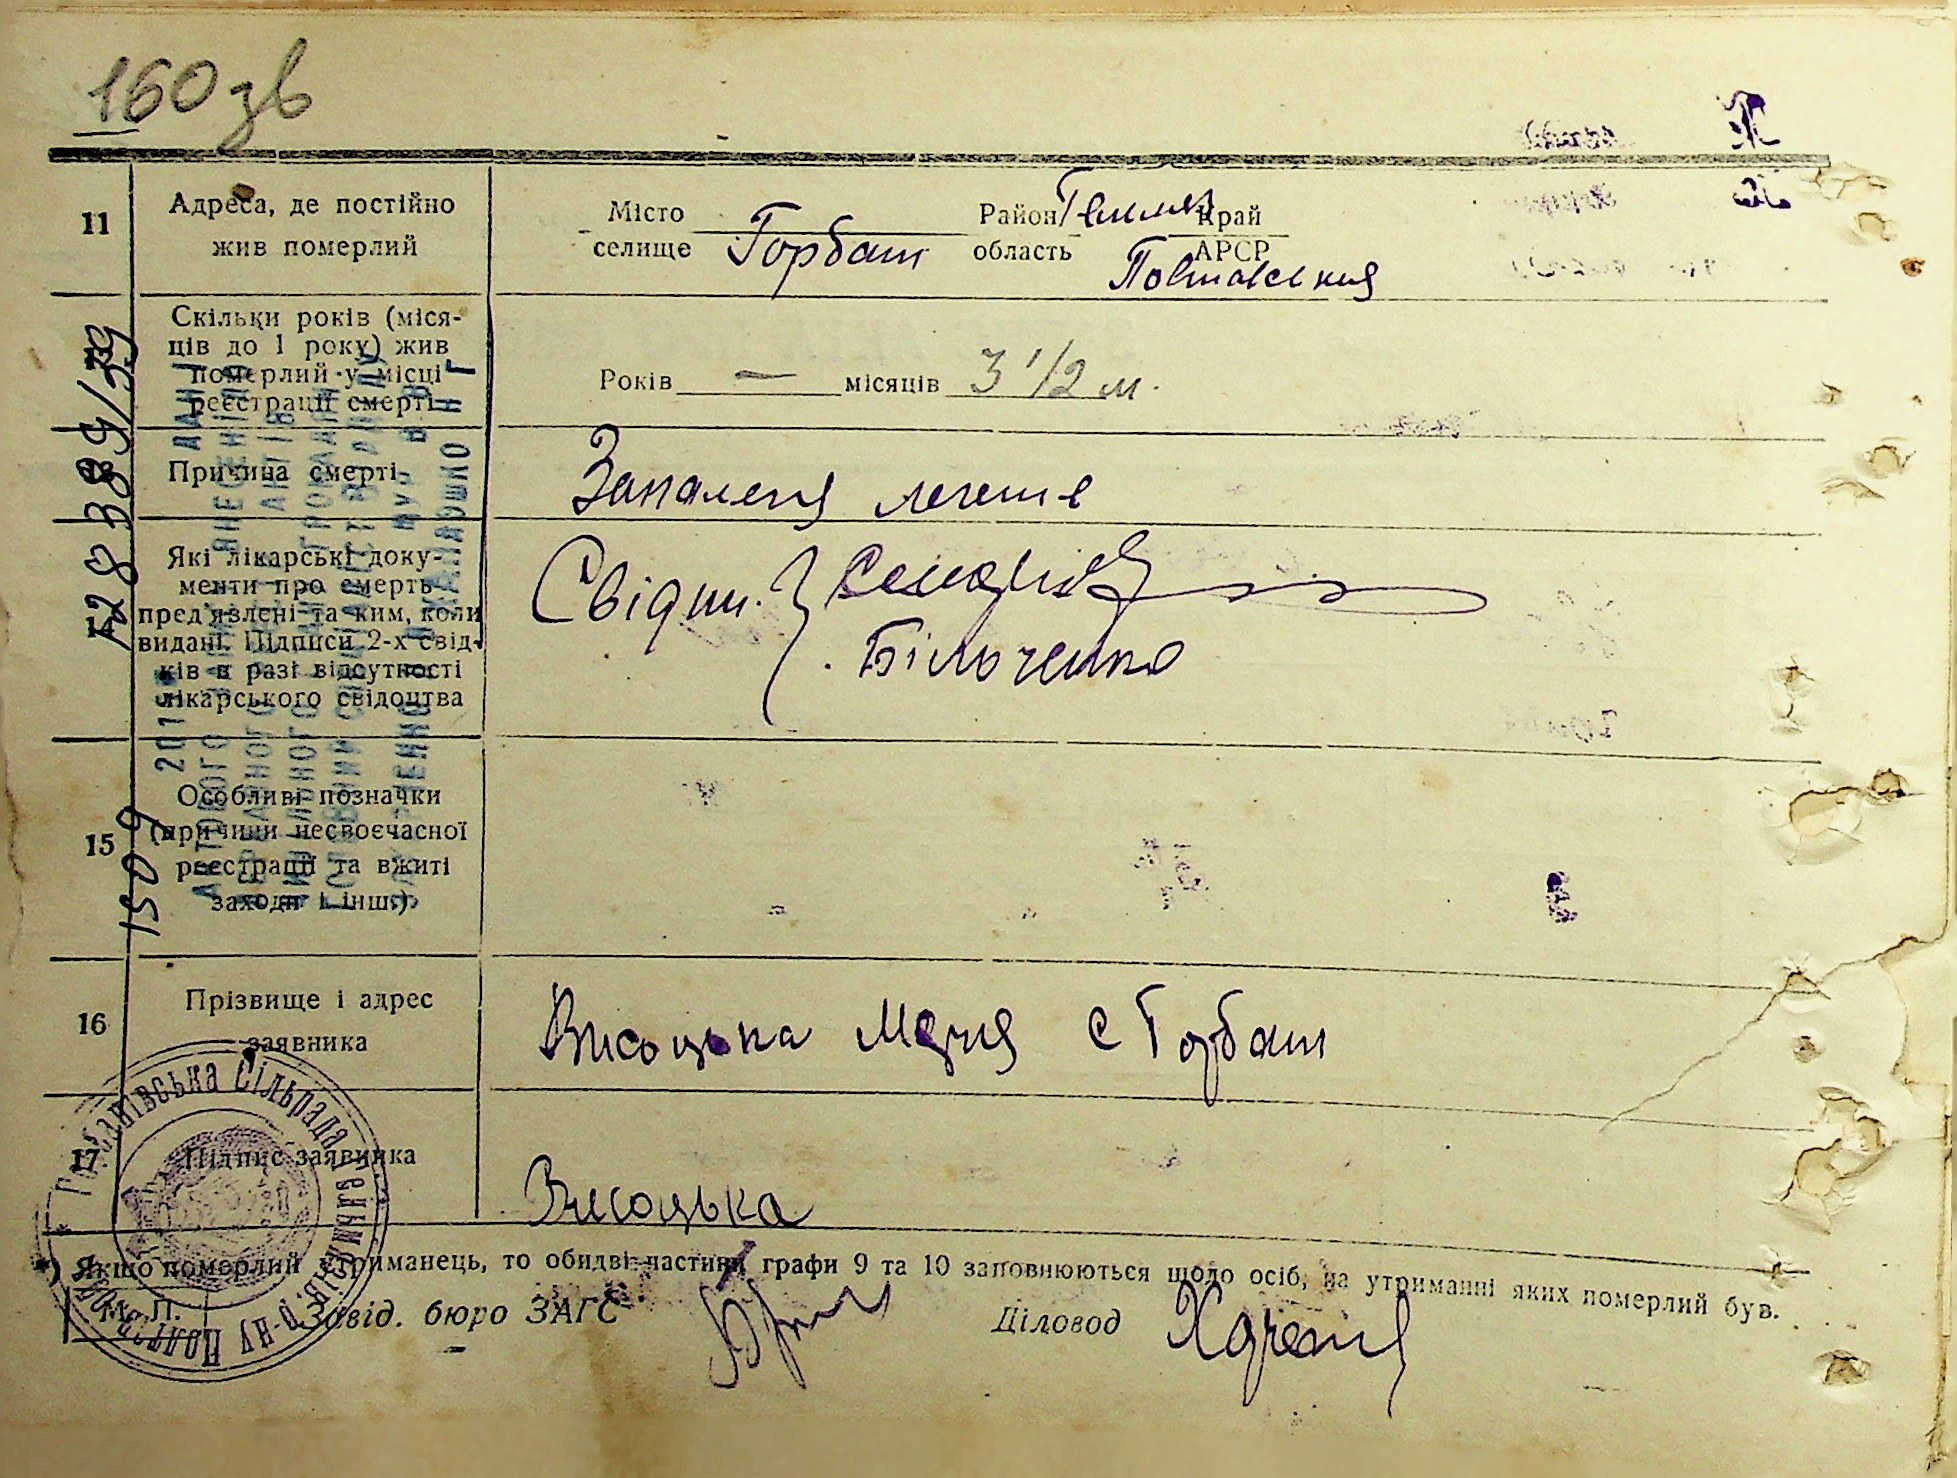 160 зв
11
Адреса, де постійно
жив померлий
Місто
селище
Горбані
Район
область
Край
АРСР
Полтавська
Скільки років (міся-
ців до 1 року) жив
померлий у місці
реєстрації смерті
Років — місяців 3 1/2 м.
Причина смерті
Запаленя легенів
Які лікарські доку-
менти про смерть
пред'явлені та ким, коли
видані. Підписи 2-х свід-
ків в разі відсутності
лікарського свідоцтва
Свідки.
Більченко
15
Особливі позначки
(причини несвоєчасної
реєстрації та вжиті
заходи і інш.)
16
Прізвище і адрес
заявника
Висоцька Марія с Горбані
17
Підпис заявника
Висоцька
*) Якщо померлий утриманець, то обидві частини графи 9 та 10 заповнюються щодо осіб, на утриманні яких померлий був.
М. П.
Завід. бюро ЗАГС
Діловод
Сільрада
1283889/39
1509